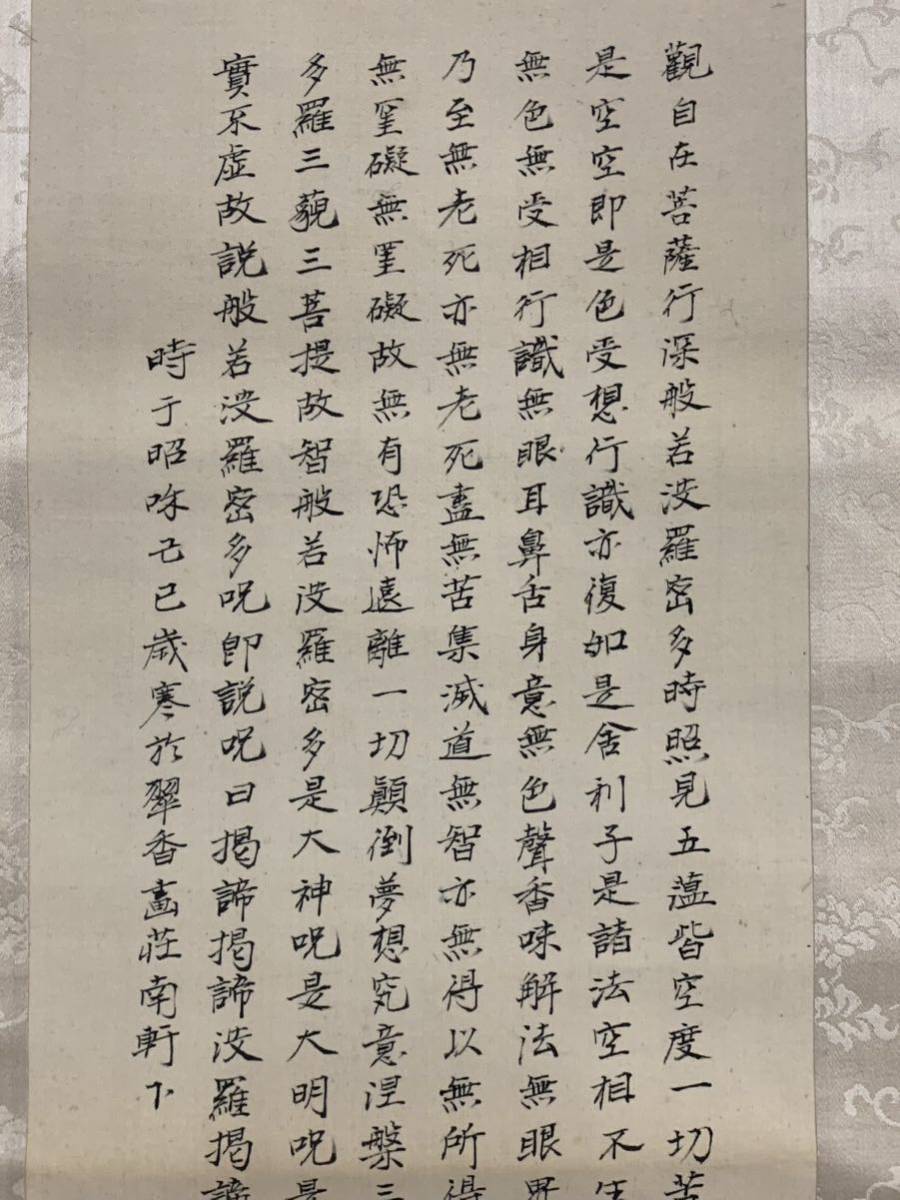 觀自在菩薩行深般若波羅密多時照見五蘊皆空度一切苦
是空空即是色受想行識亦復如是舍利子是諸法空相不生
無色無受相行識無眼耳鼻舌身意無色聲香味解法無眼界
乃至無老死亦無老死盡無苦集滅道無智亦無得以無所得
無罣礙無罣礙故無有恐怖遠離一切顛倒夢想究意涅槃三
多羅三藐三菩提故智般若波羅密多是大神呪是大明呪是
實不虛故説般若波羅密多呪即説呪曰揭諦揭諦波羅揭諦
時于昭咊己巳歲寒於翠香畫莊南軒下